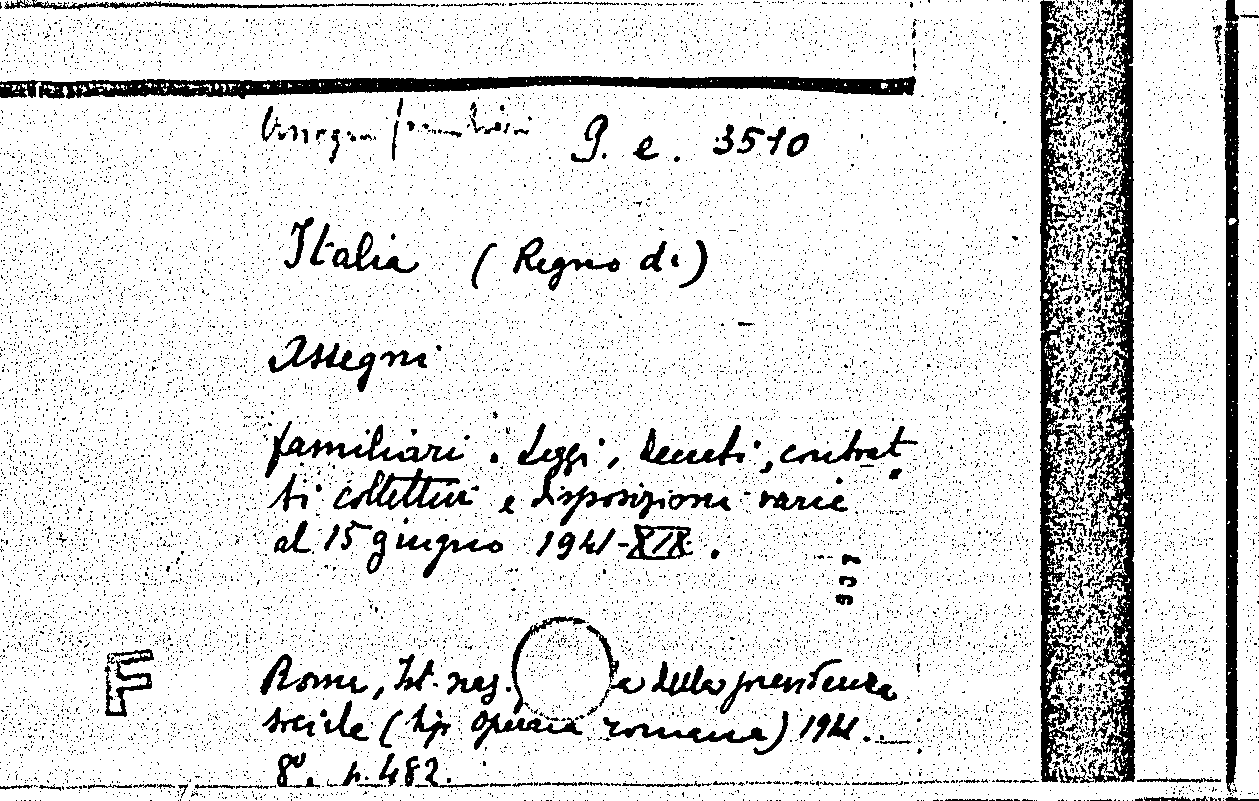 Assegni familiari G. e. 3510
Italia (Regno di)
Assegni
familiari. Leggi, decreti, contrat
ti collettivi e disposizioni varie
al 15 giugno 1941-XIX.
907
F
Roma, Ist. naz. della previdenza
sociale (tip. operaia romana) 1941.
8º. p. 482.